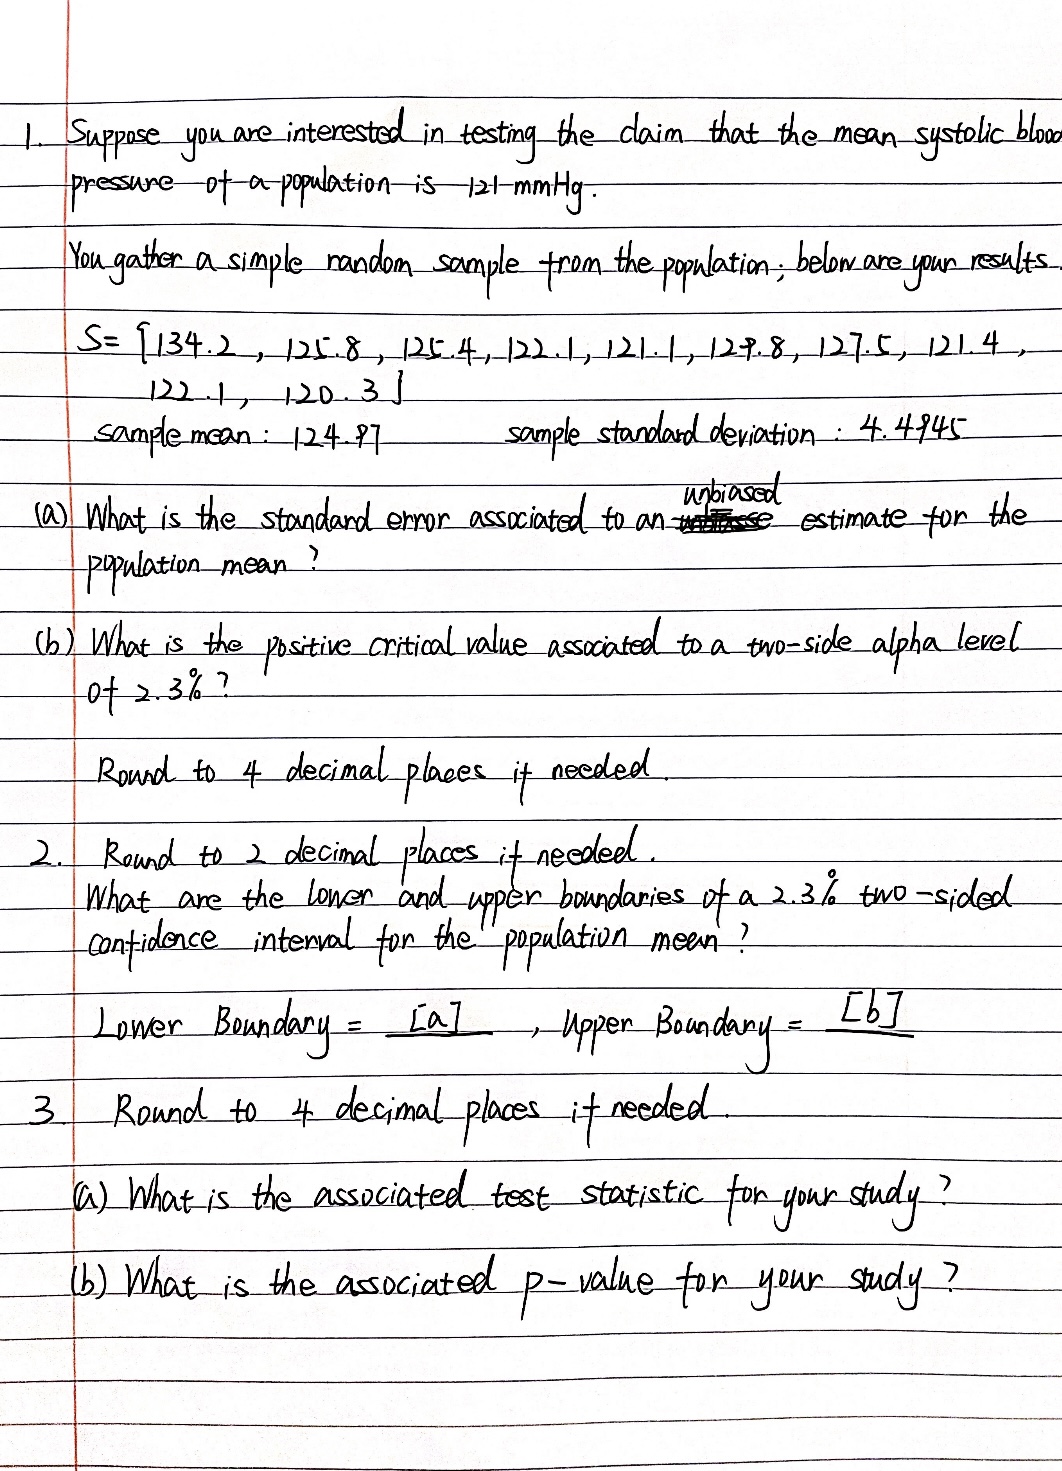 1. Suppose you are interested in testing the claim that the mean systolic blood
pressure of a population is 121 mmHg.
You gather a simple random sample from the population; below are your results.
S= [134.2, 125.8, 125.4, 122.1, 121.1, 129.8, 127.5, 121.4,
122.1, 120.3]
sample mean: 124.97 sample standard deviation: 4.4945
unbiased
(a) What is the standard error associated to an estimate for the
population mean?
(b) What is the positive critical value associated to a two-side alpha level
of 2.3%?
Round to 4 decimal places if needed.
2. Round to 2 decimal places if needed.
What are the lower and upper boundaries of a 2.3% two-sided
confidence interval for the population mean?
Lower Boundary = [a], Upper Boundary = [b]
3 Round to 4 decimal places if needed.
(a) What is the associated test statistic for your study?
(b) What is the associated p-value for your study?